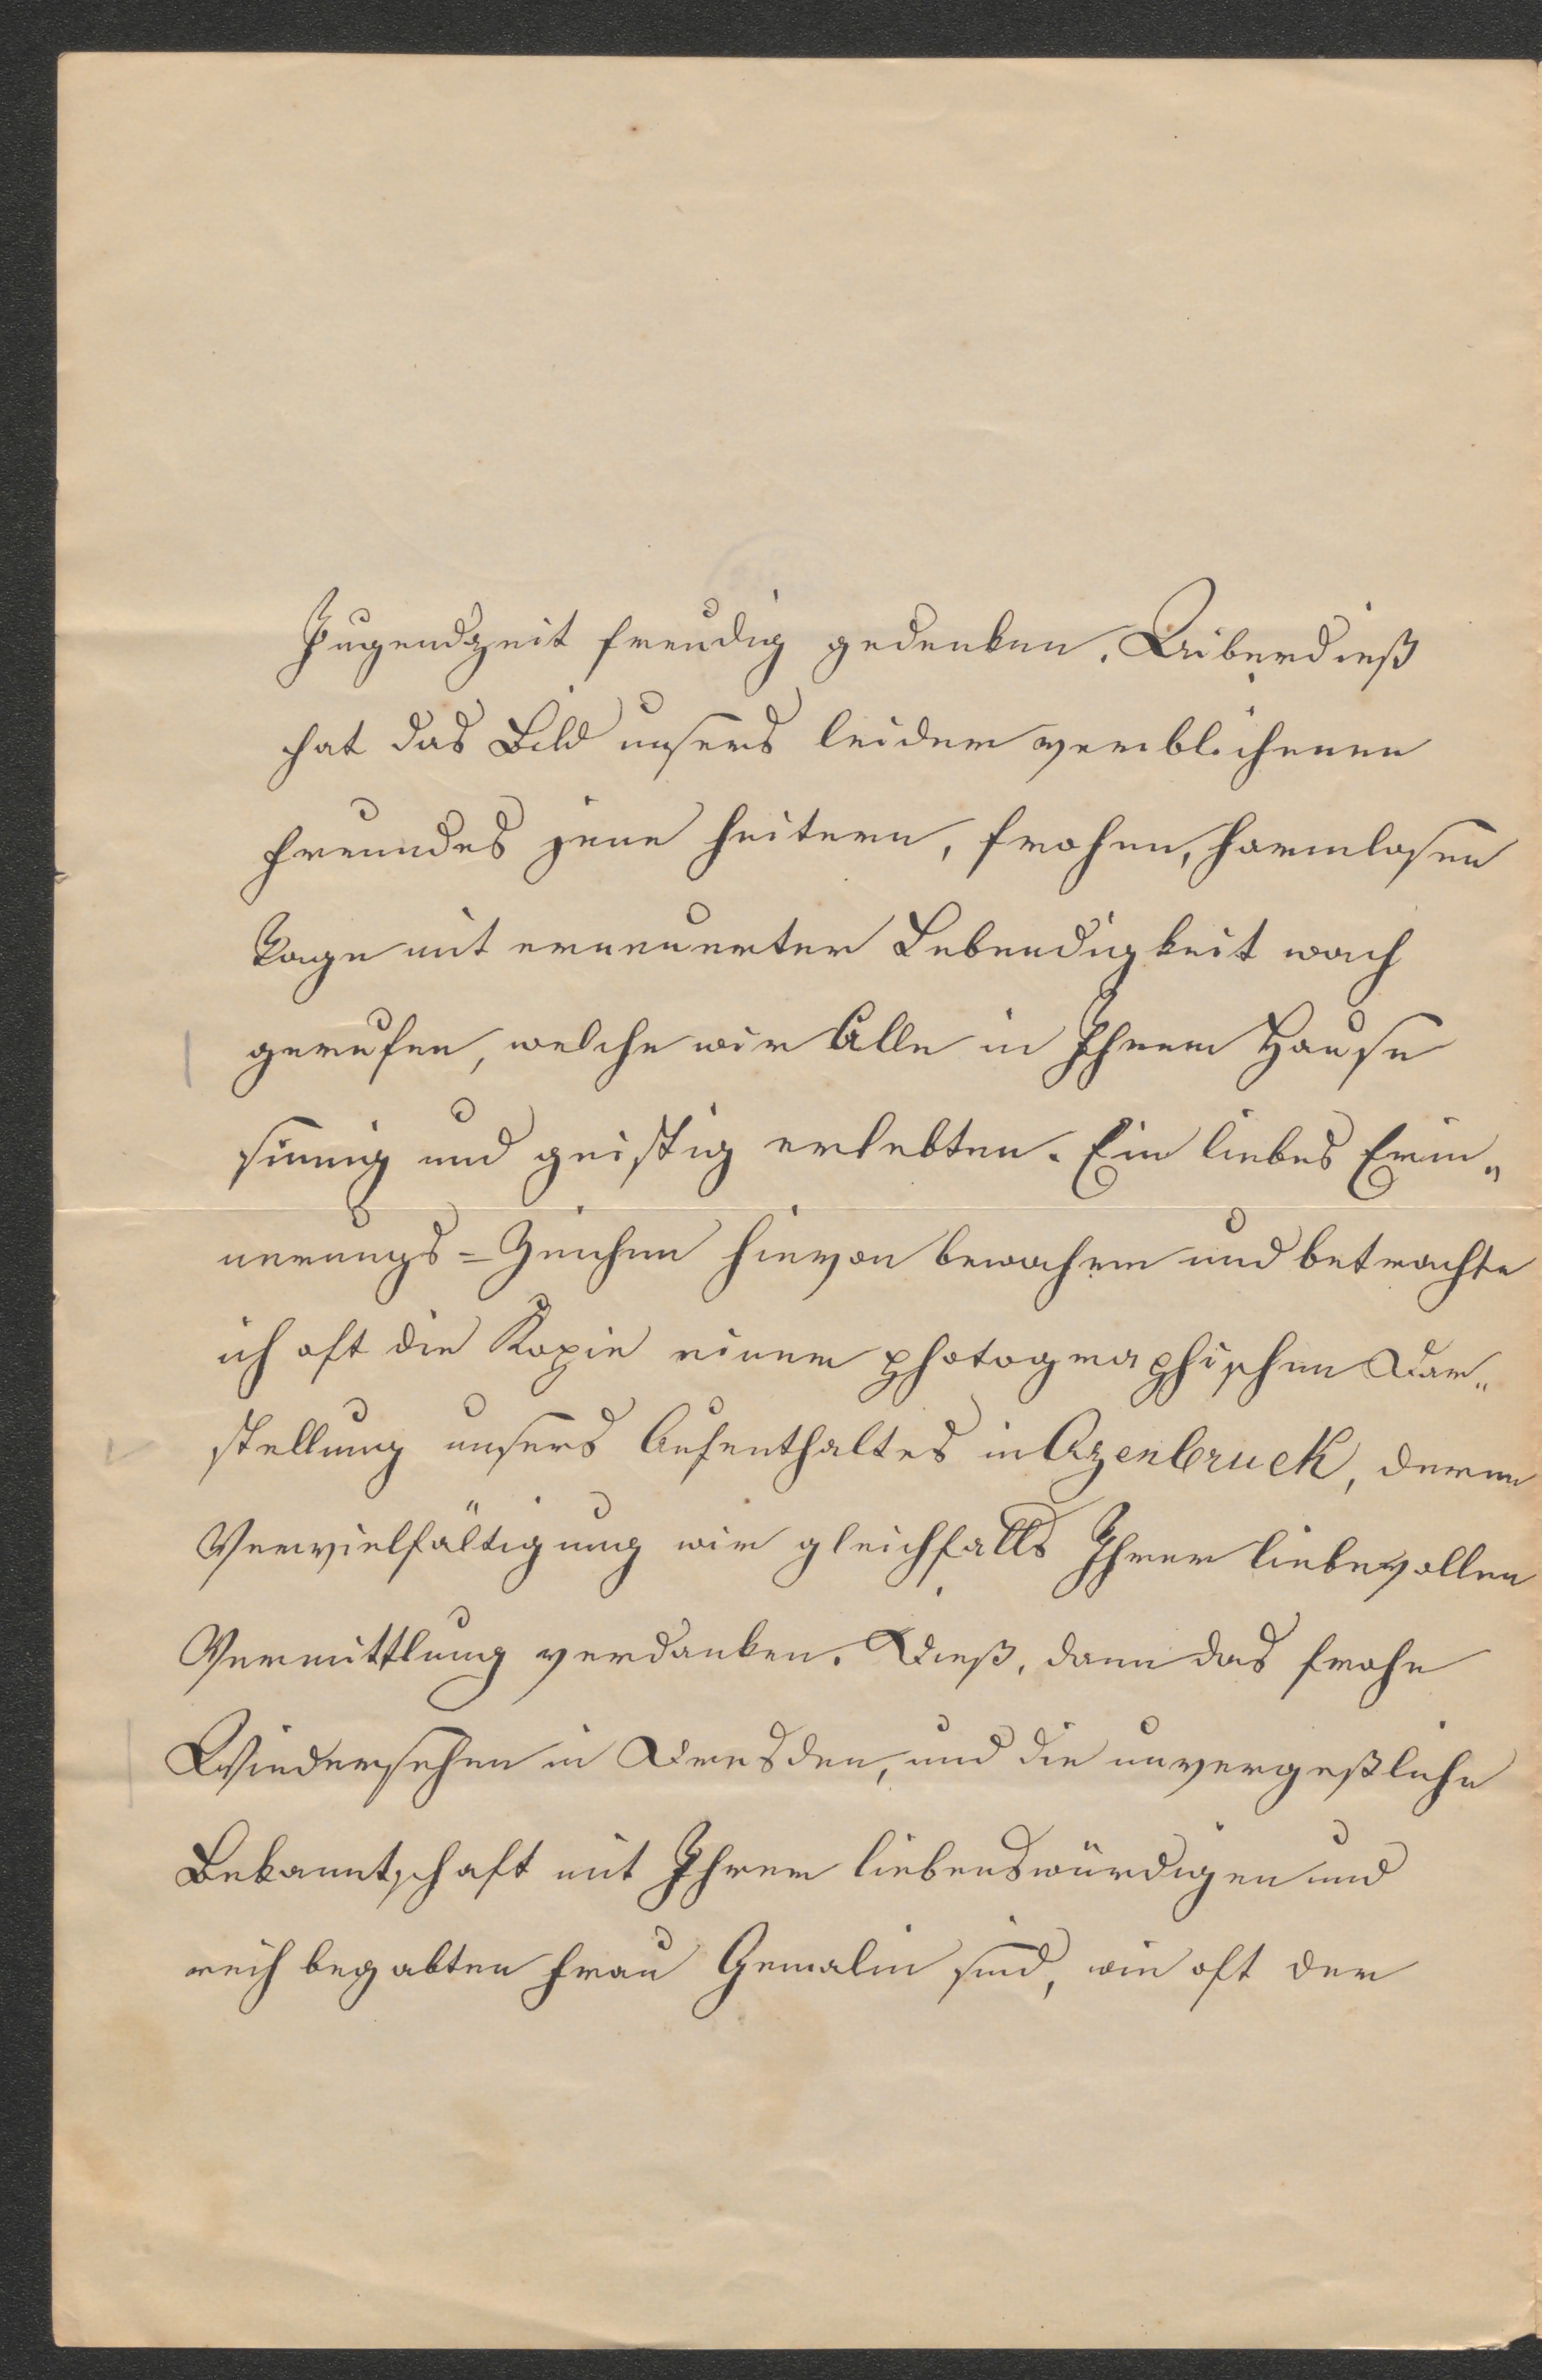 Jugendzeit freudig gedenken. Uiberdieß
hat das Bild unsers leider verblichenen
Freundes jene heitern, frohen, harmlosen
Tage mit erneuerter Lebendigkeit wach
gerufen, welche wir Alle in Ihrem Hause
sinnig und geistig erlebten. Ein liebes Erin„
nerungs=Zeichen hievon bewahre und betrachte
ich oft die Kopie einer photographischen Dar„
stellung unsers Aufenthaltes in Azenbruck, deren
Vervielfältigung wir gleichfalls Ihrer liebevollen
Vermittlung verdanken. Dieß, dann das frohe
Wiedersehen in Dresden, und die unvergeßliche
Bekanntschaft mit Ihrer liebenswürdigen und
reich begabten Frau Gemalin sind, wie oft der